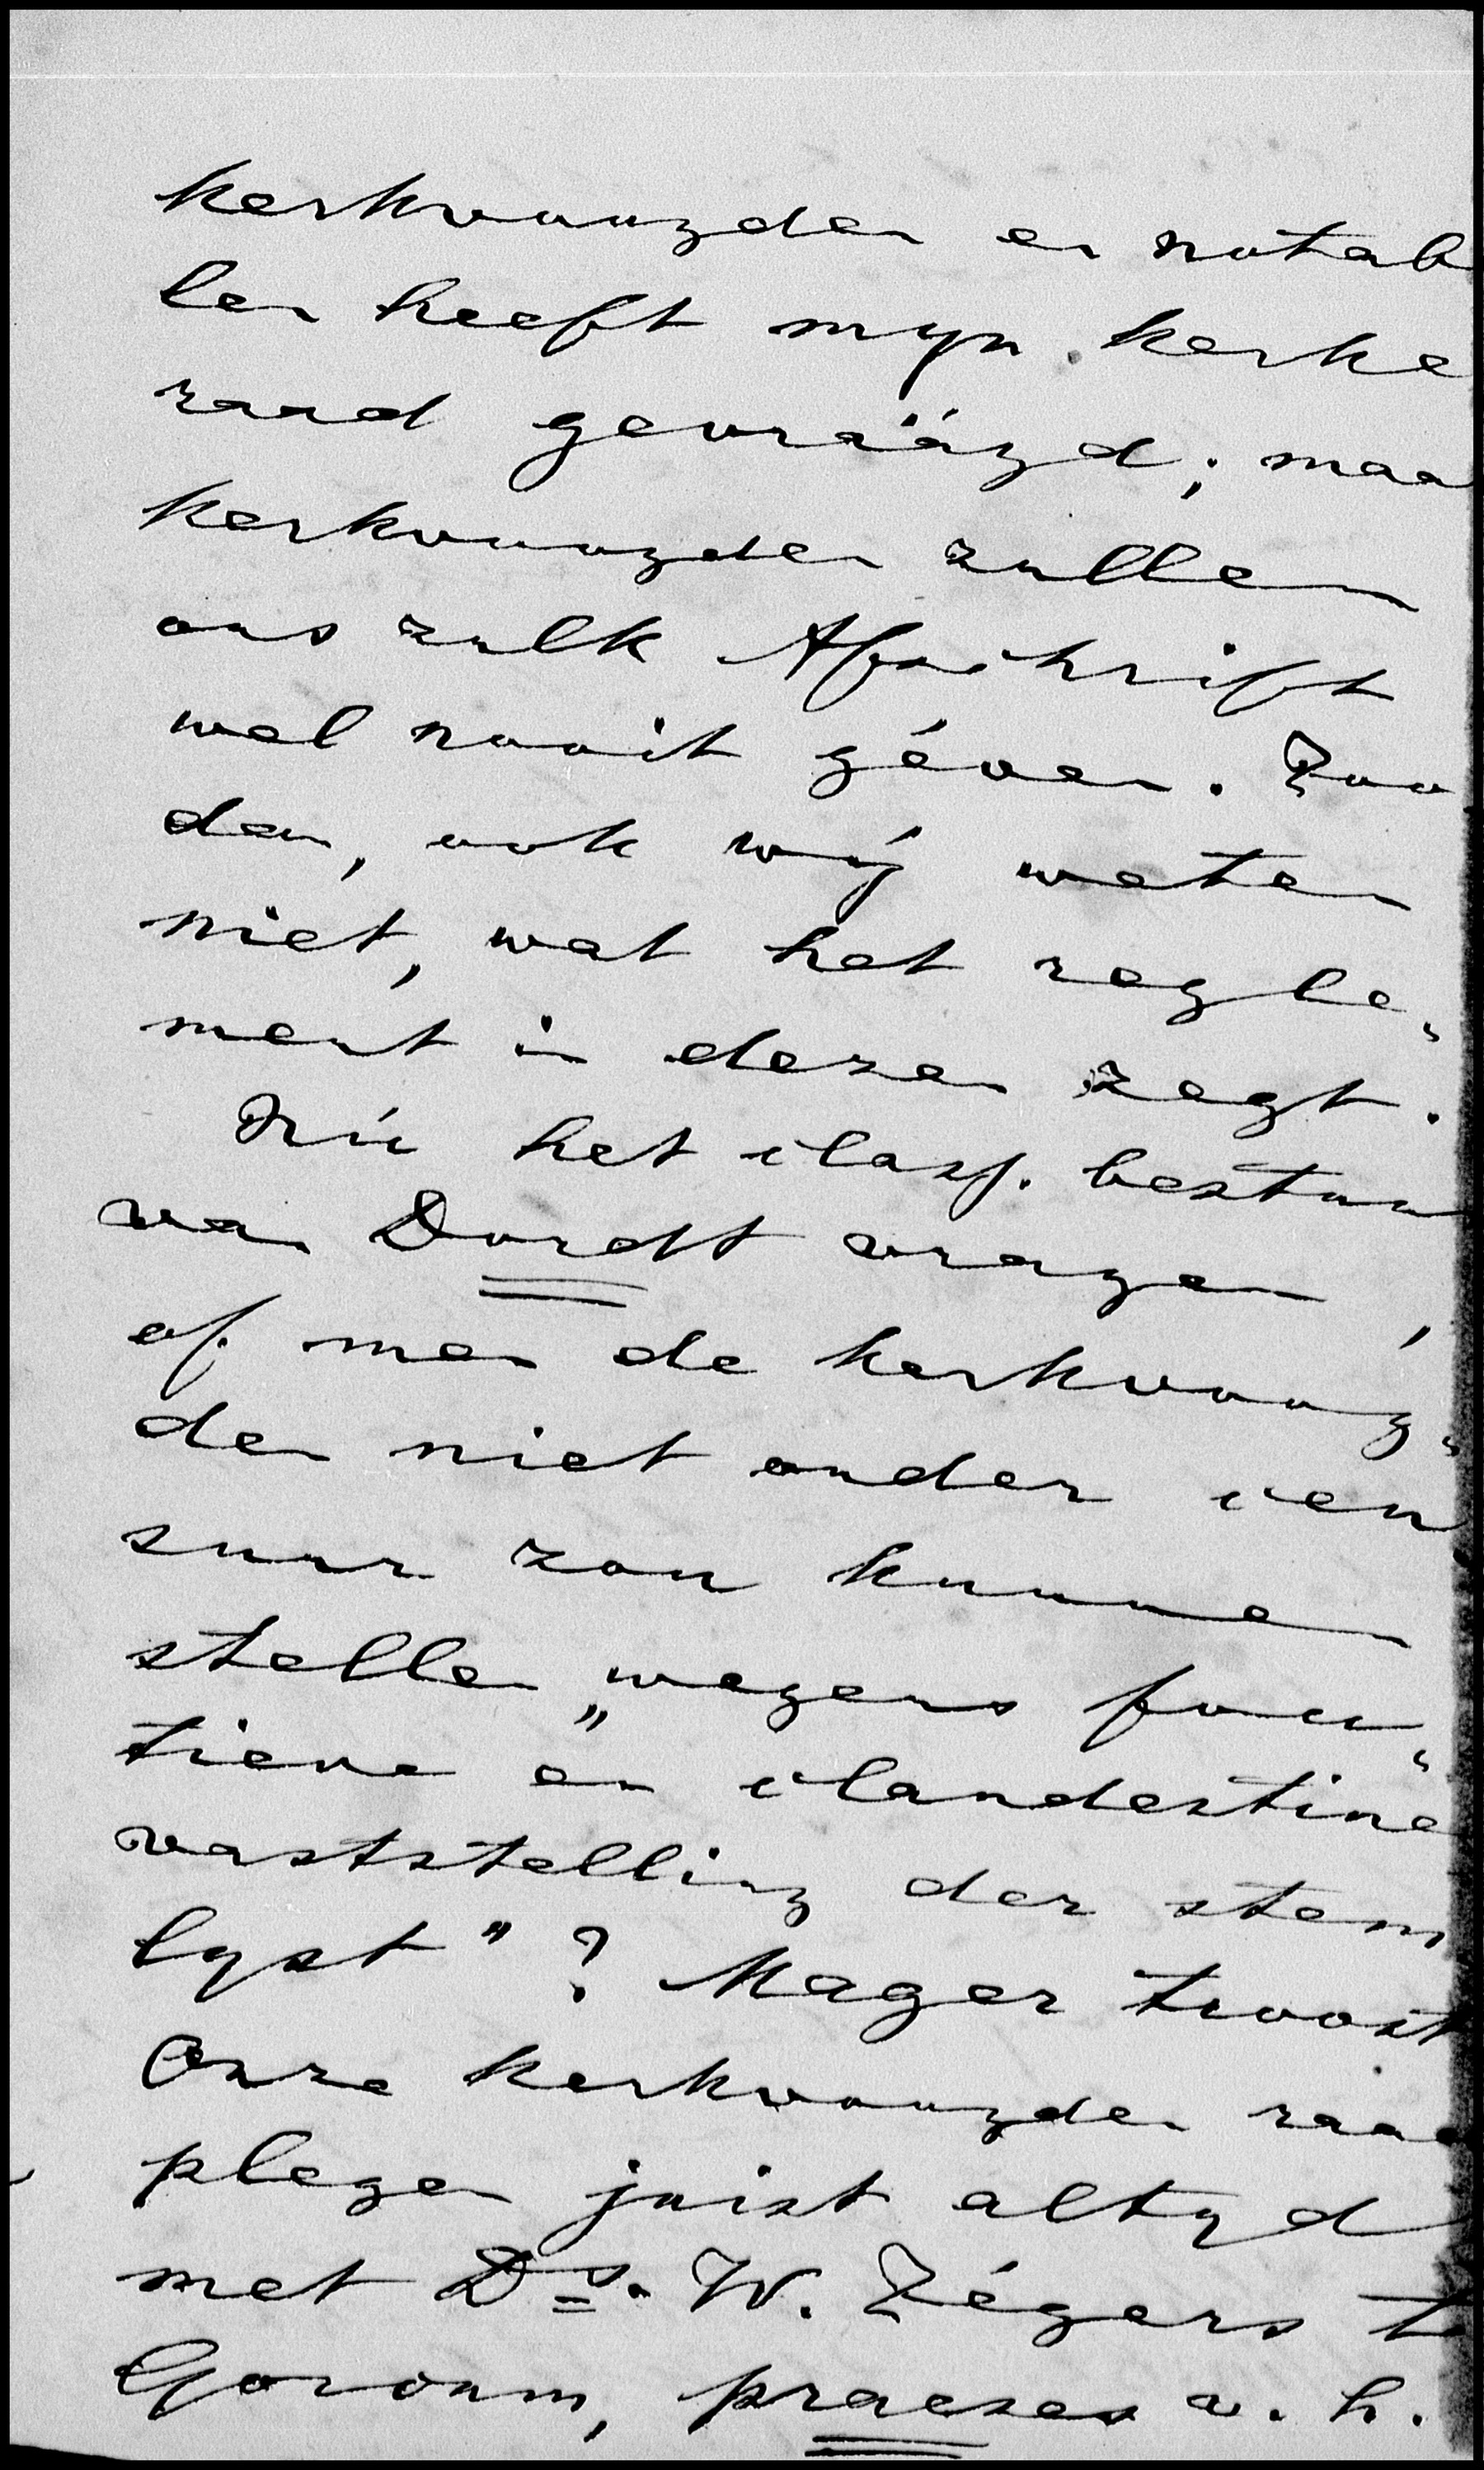 kerkvoogden en notab
len heeft myn kerke
raad gevráágd; maa
kerkvoogden zullen
ons zulk Afschrift
wel nooit géven. Zoo
dan, ook wij weten
niet, wat het regle„
ment in dezen zegt.
Nú het class. bestuu
van Dordt vragen,
of men de kerkvoog„
den niet onder cen
suur zou kunnen
stellen „wegens fou„
tieve en clandestine
vaststelling der stem
lyst"? Mager troost
Onze kerkvoogden raad
plegen juist altyd
met Ds. W. Zégers te
Gorcum, praeses v. h.